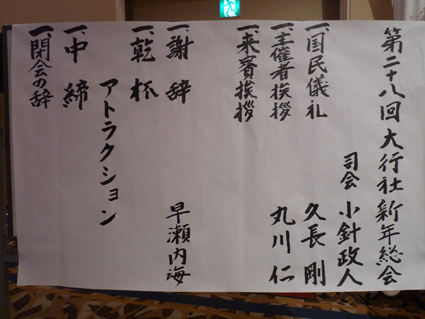 第二十八回 大行社 新年総会
司会 小針政人
一、国民儀礼 久長 剛
一、主催者挨拶 丸川 仁
一、来賓挨拶
一、謝辞 早瀬内海
一、乾杯
アトラクション
一、中締
一、閉会の辞